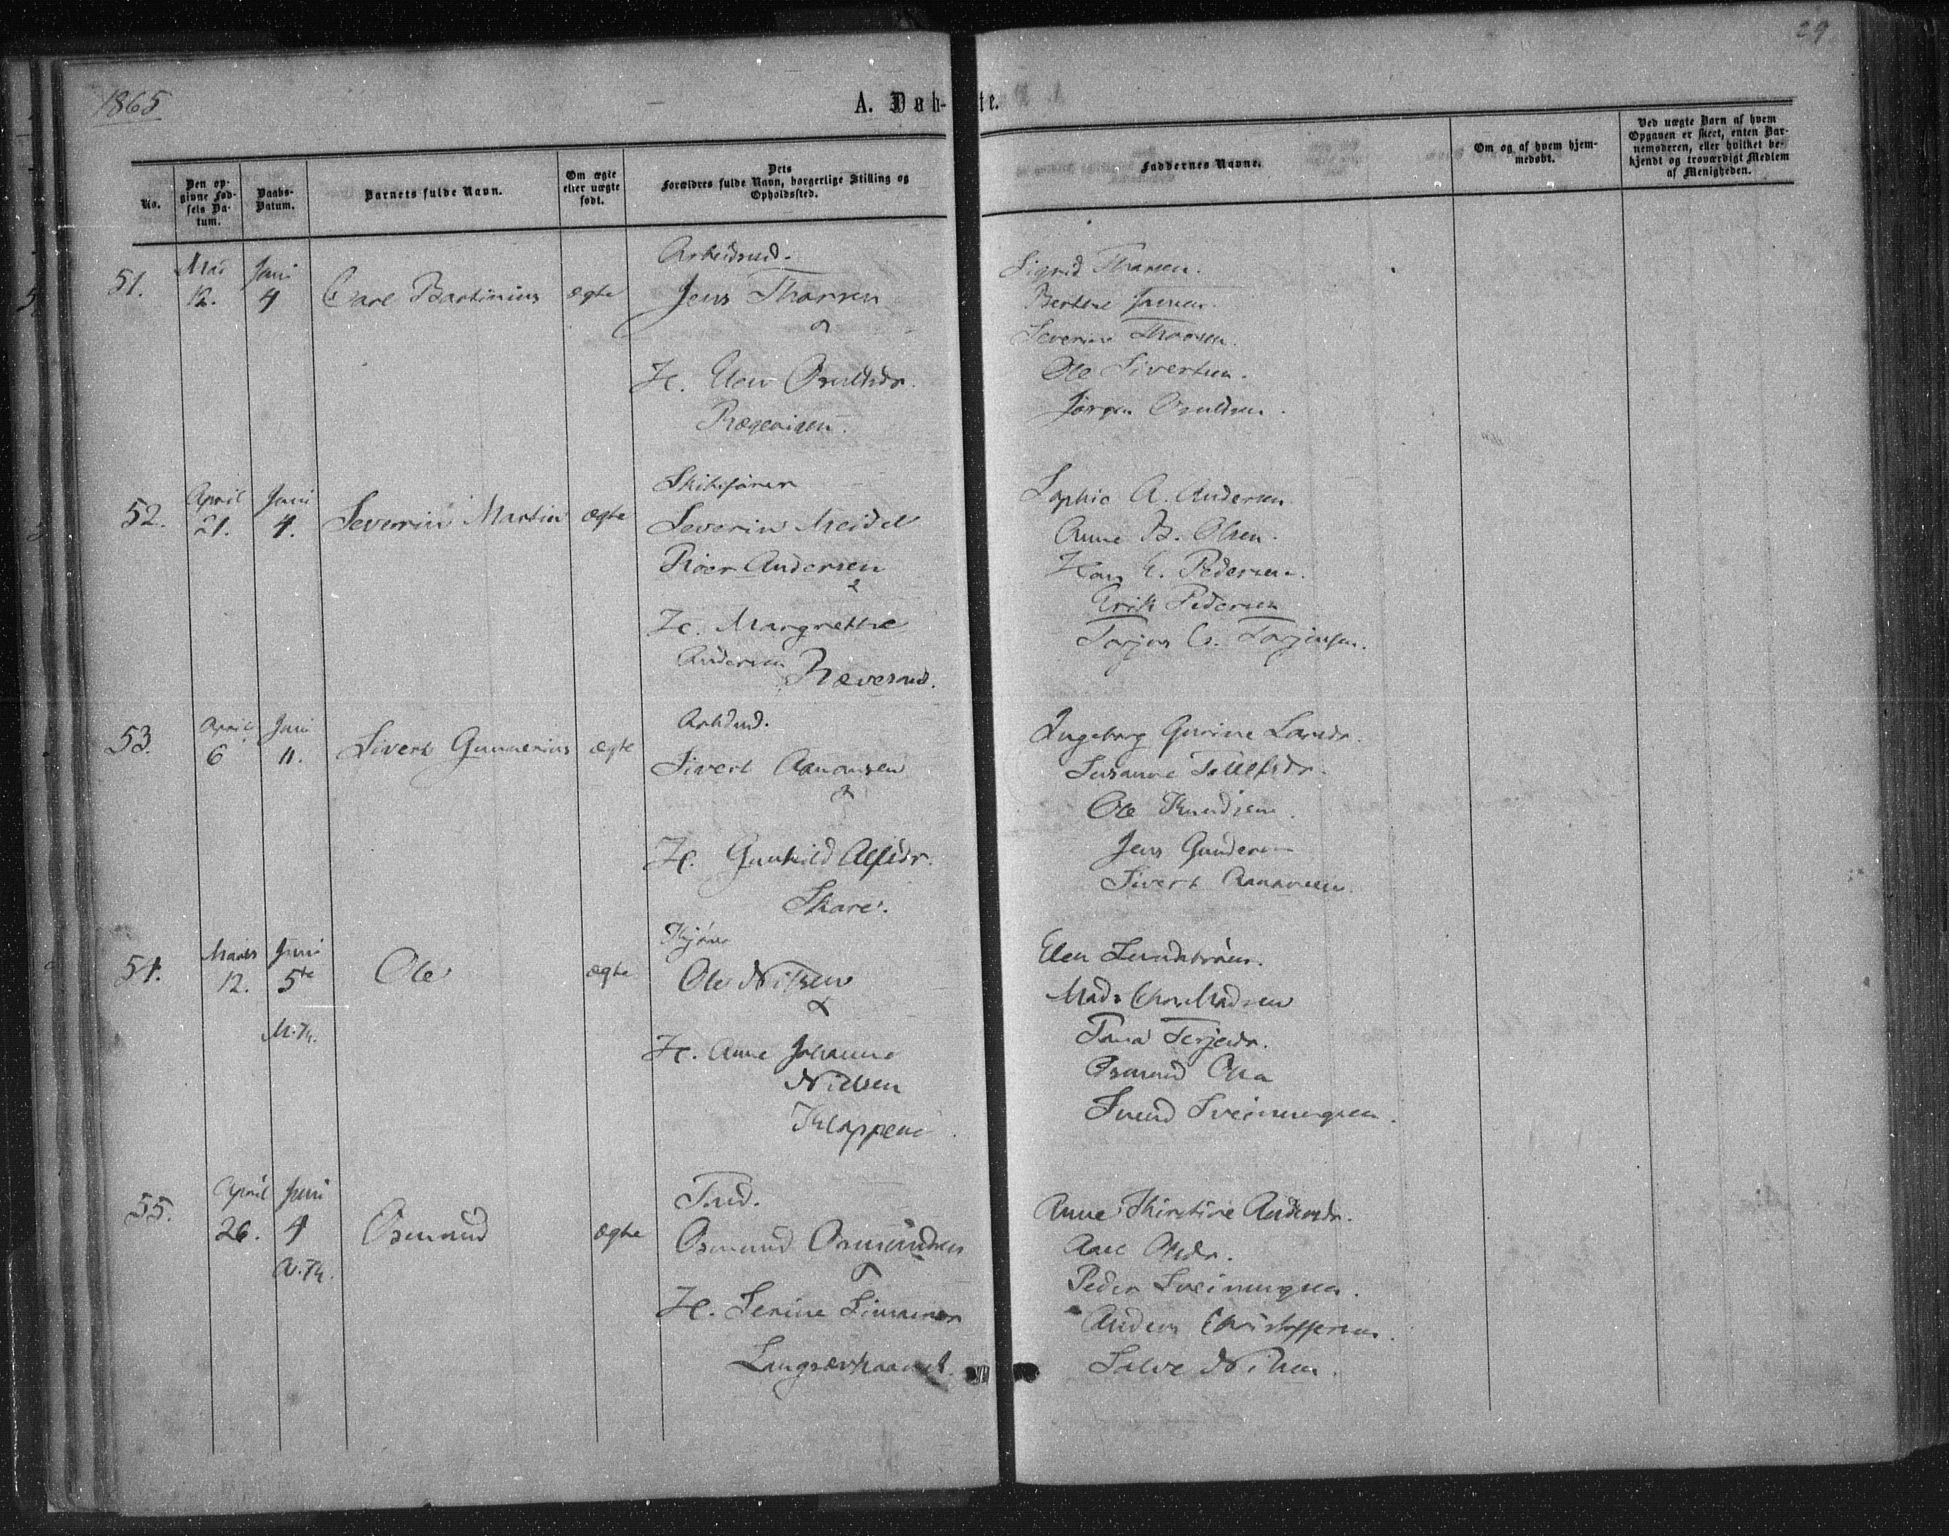 1865
A. Døb-te.
29
No.
Den op-
givne Fød-
sels Da-
tum.
Daabs-
Datum.
Barnets fulde Navn.
Om ægte
eller uægte
født.
Dets
Forældres fulde Navn, borgerlige Stilling og
Opholdssted.
Faddernes Navne.
Om og af hvem hjem-
medøbt.
Ved uægte Barn af hvem
Opgaven er skeet, enten Bar-
nemoderen, eller hvilket be-
kjendt og troværdigt Medlem
af Menigheden.
51.
Mai
12.
Juni
4
Carl Bartinius
ægte
Arbeidsmd.
Jens Thorsen
H. Elen Osuldsdr.
Sigrid Thorsen.
Berthe Jensen.
Severine Thorsen.
Ole Sivertsen.
Jørgen Osuldsen.
52.
April
21.
Juni
4.
Severin Martin
ægte
Skibsfører
Severin Meidel
Roer Andersen
H. Margrethe
Andersen Revesand.
Sophie A. Andersen
Anne B. Olsen.
Hans E. Pedersen.
Erik Pedersen
Torjus C. Torjusen.
53.
April
6
Juni
11.
Sivert Gunnerius
ægte
Arbdmd.
Sivert Aanonsen
H. Gunhild Alfsdr.
Skare.
Ingeborg Gurine Larsdr.
Susanne Tellefsdr.
Ole Knudsen.
Jens Gundersen
Sivert Aanonsen.
54.
Marts
12.
Juni
5te
M.Th.
Ole
ægte
Ole Nilsen
H. Anne Johanne
Nielsen
Klappene.
Elen Lundstrøm.
Mads Chr. Madsen
Tone Terjesdr.
Osmund
Svend Sveinungsen.
55.
April
26.
Juni
4
N.Th.
Osmund
ægte
Osmund Osmundsen
H. Serine
Anne Kirstine Andersdr.
Aase Olsdr.
Peder Sveinungsen.
Anders Christophersen.
Salve Nilsen.